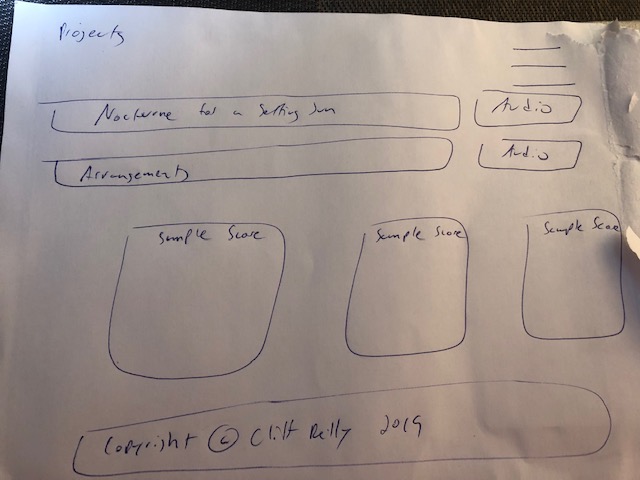 Projects
Nocturne for a Setting Sun
Audio
Arrangements
Audio
Sample Score
Sample Score
Sample Score
Copyright © Cliff Reilly 2019